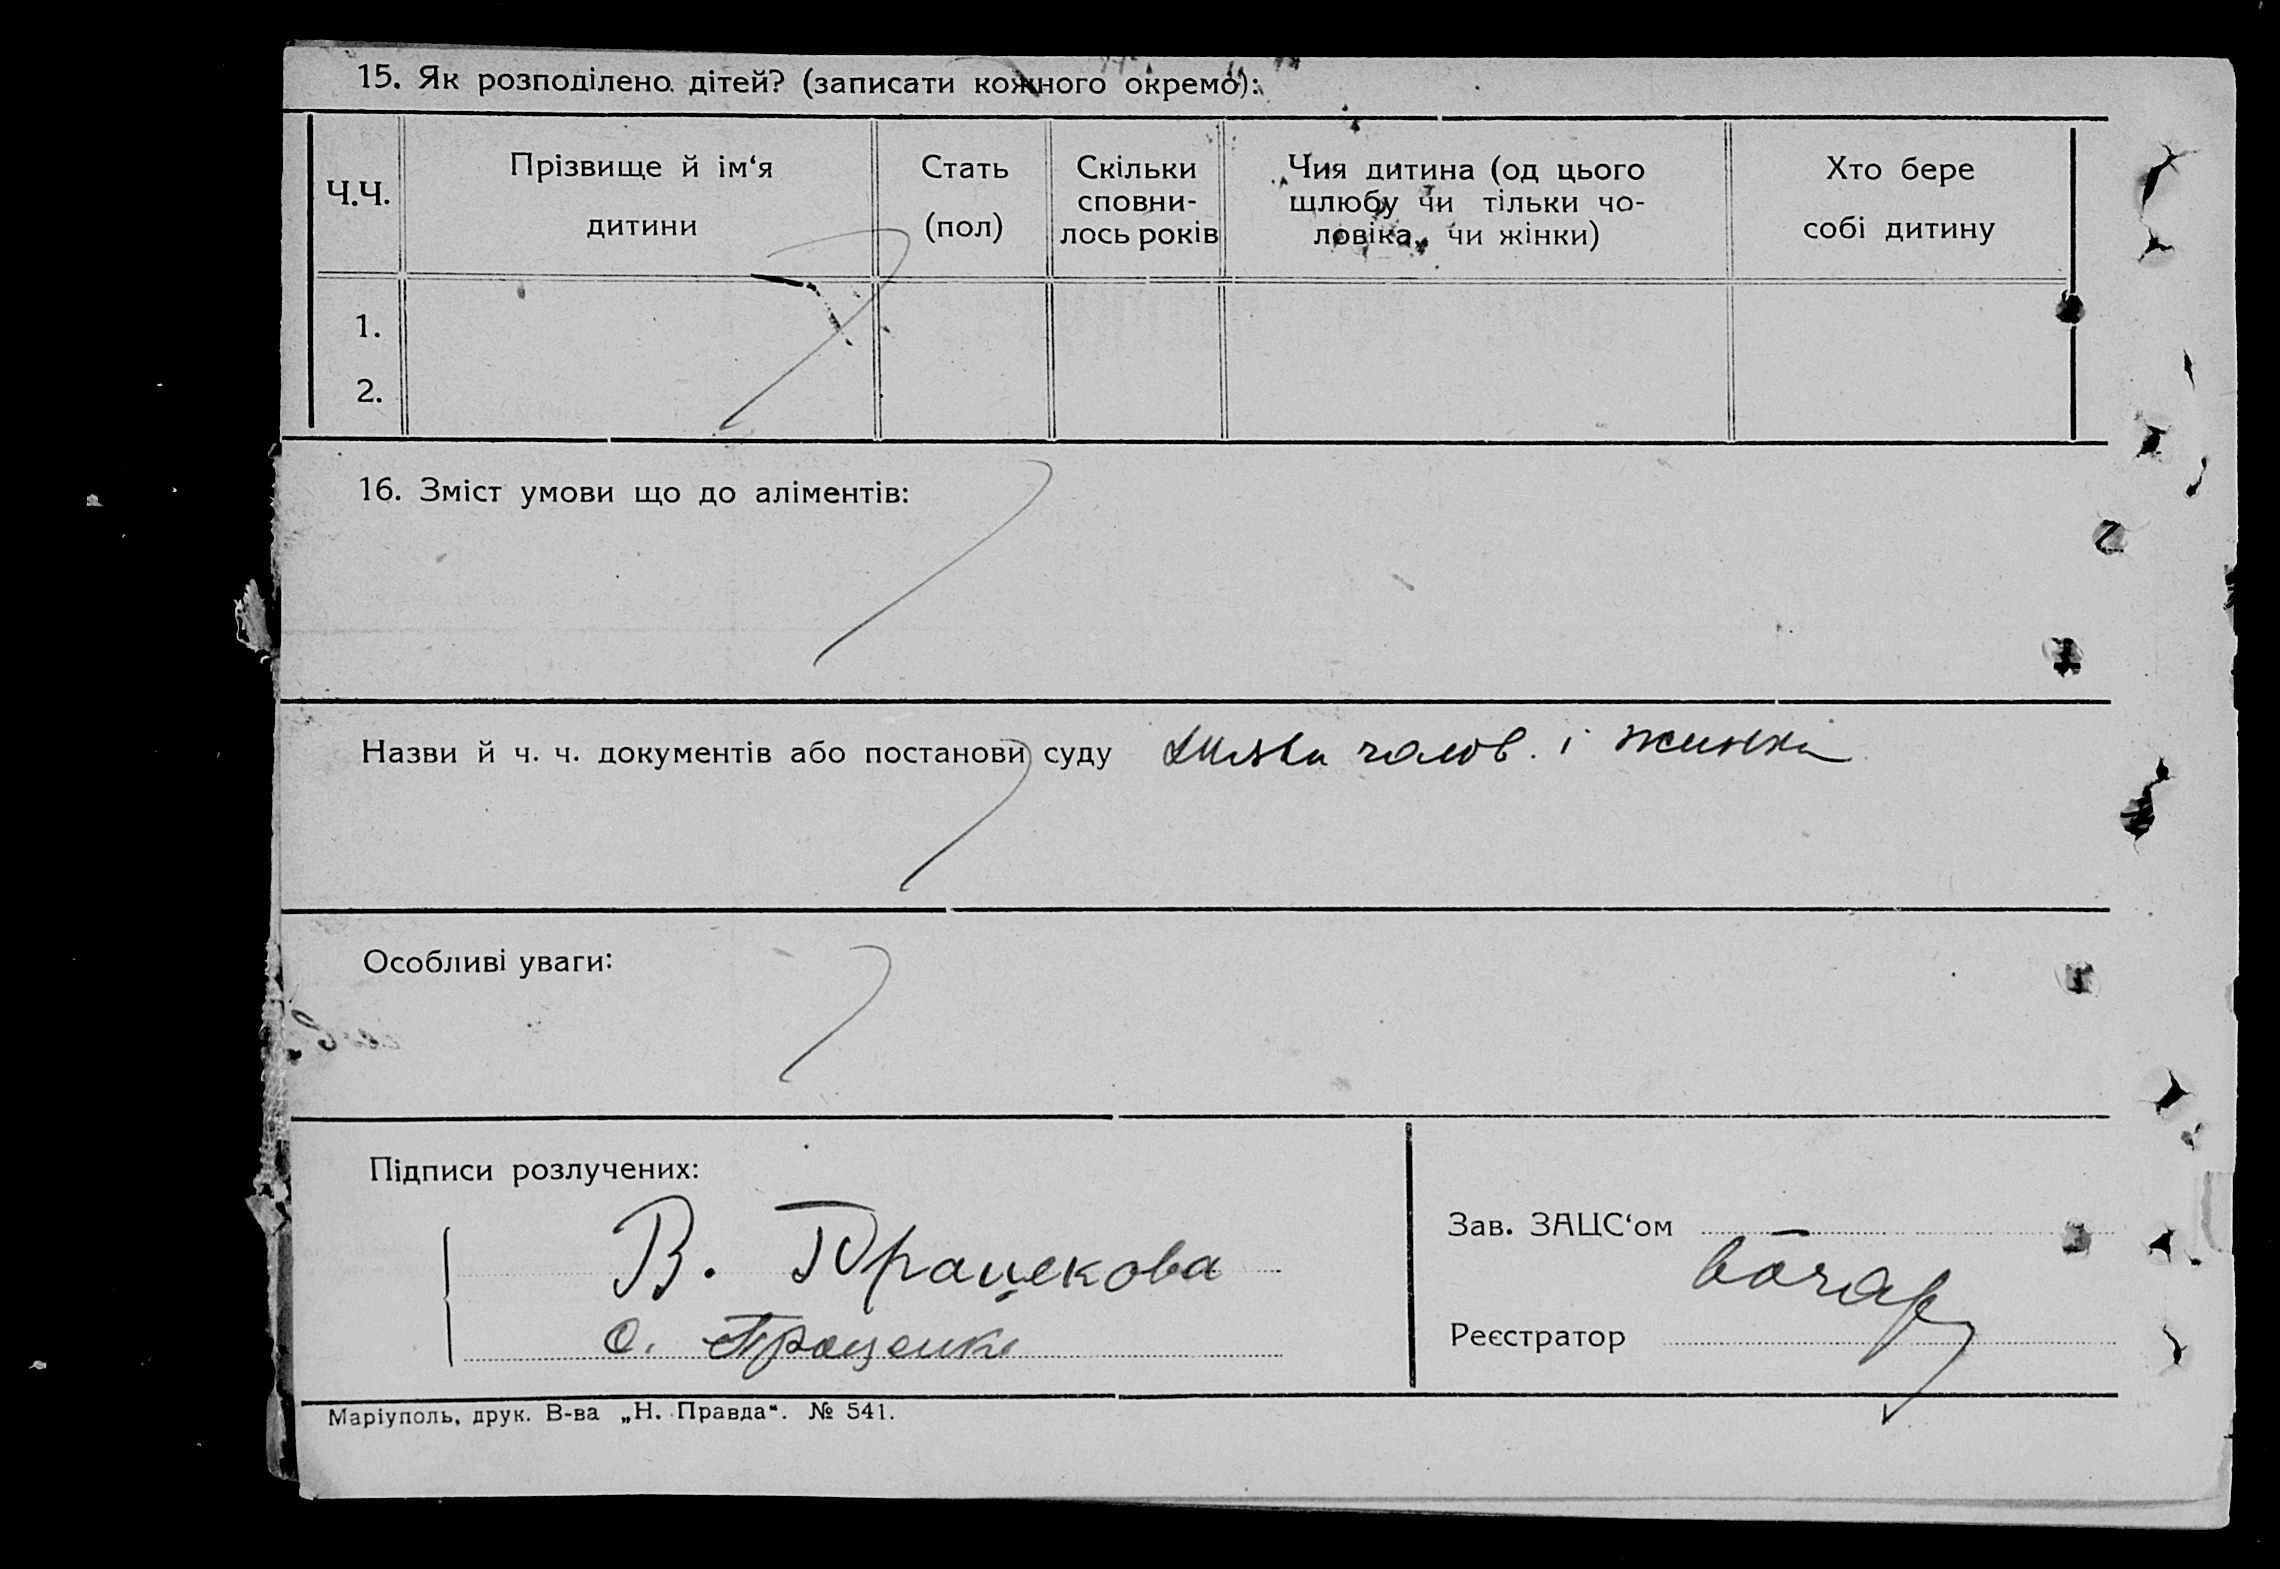 15. Як розподілено дітей? (записати кожного окремо):
Ч.Ч.
Прізвище й ім‘я
дитини
Стать
(пол)
Скільки
сповни-
лось років
Чия дитина (од цього
шлюбу чи тільки чо-
ловіка, чи жінки)
Хто бере
собі дитину
1.
2.
16. Зміст умови що до аліментів:
Назви й ч. ч. документів або постанови суду чолов. і жинки
Особливі уваги:
Підписи розлучених:
В.
О. Проценко
Зав. ЗАЦС‘ом
Реєстратор
Маріуполь, друк. В-ва „Н. Правда“. № 541.